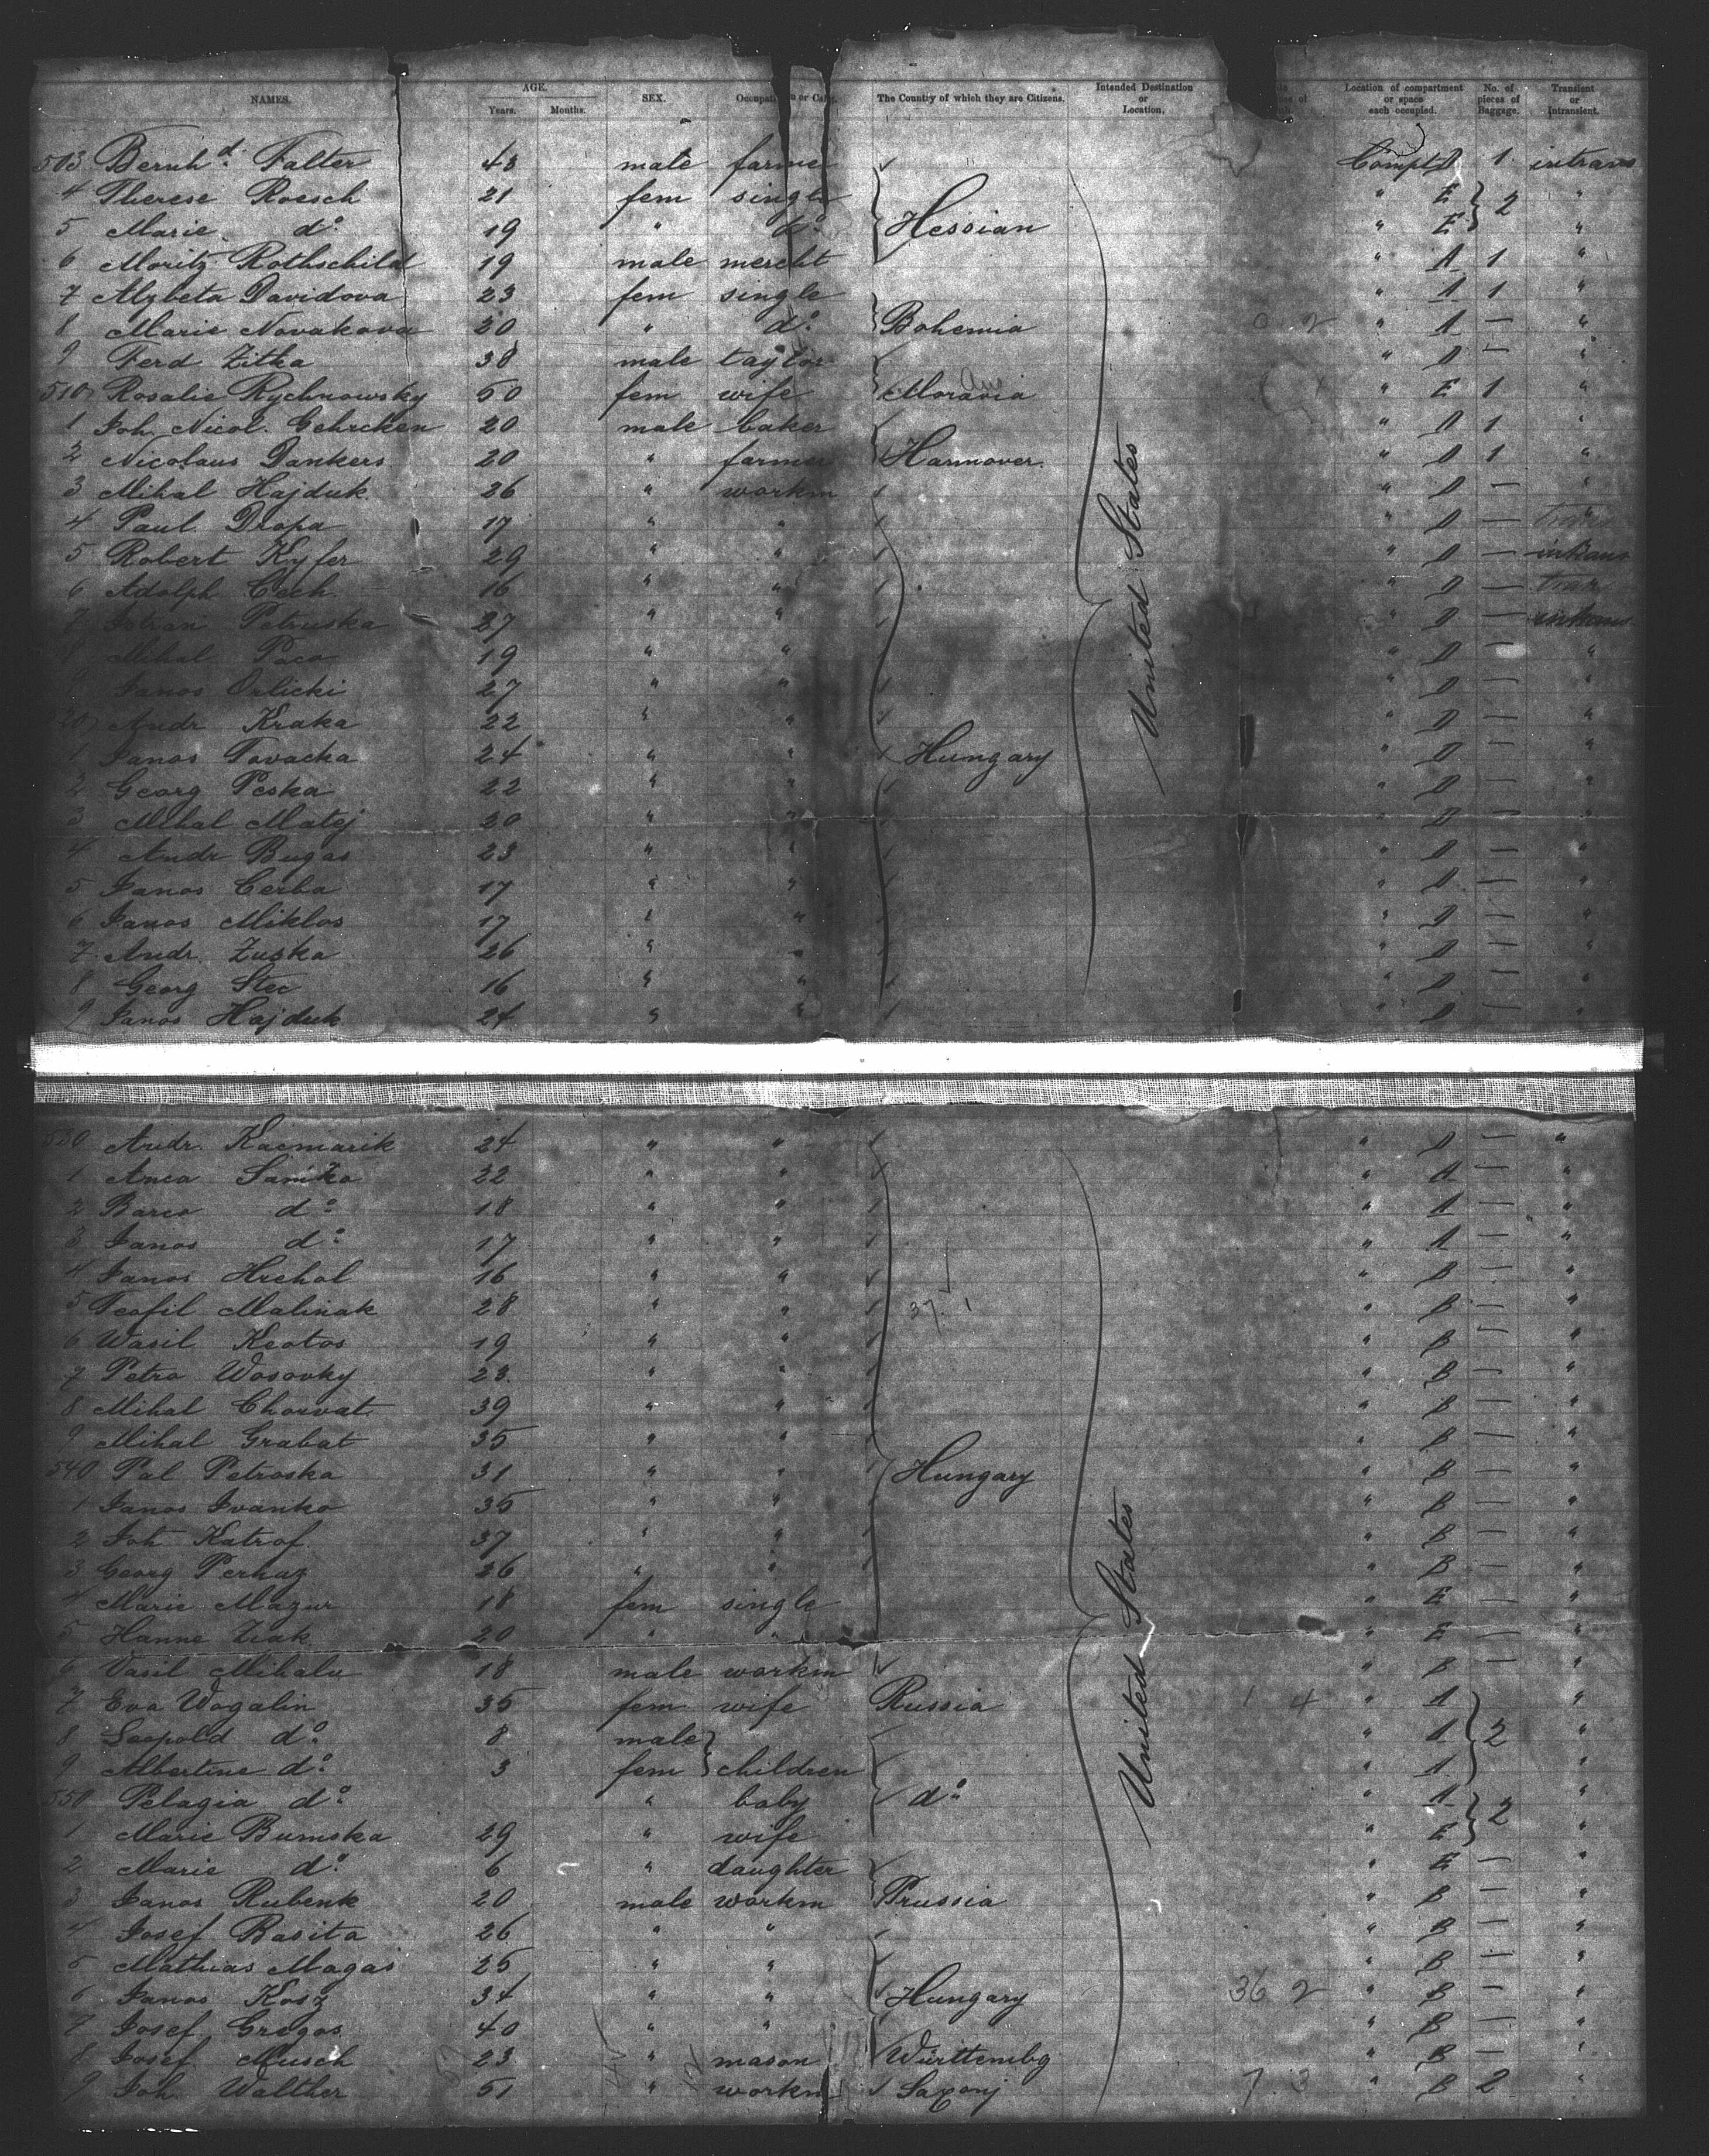 NAMES. AGE. Years. Months. SEX. Occupation or Calg. The Country of which they are Citizens. Intended Destination or Location. Location of compartment or space each occupied. No. of pieces of Baggage. Transient or Intransient.
503 Bernhd. Falter 43 male farmer Compt D 1 intrans
4 Therese Roesch 21 fem single " E } 2 "
5 Marie do. 19 " do. Hessian " E "
6 Moritz Rothschild 19 male mercht " A 1 "
7 Alzbeta Davidova 23 fem single " A 1 "
8 Marie Novakova 20 " do. Bohemia 0 2 " A — "
9 Ferd Zitka 38 male taylor " D — "
510 Rosalie Rychnowsky 50 fem wife Moravia " E 1 "
1 Joh. Nicol. Gehrcken 20 male baker " D 1 "
2 Nicolaus Dankers 20 " farmer Hannover. " D 1 "
3 Mihal Hajduk 26 " workm " D — "
4 Paul Dropa 17 " " " D — trans
5 Robert Kyfer 29 " " " D — intrans
6 Adolph Cech 16 " " " D — trans
7 Petruska 27 " " " D — intrans
8 Mihal Paco 19 " " " D "
9 Janos Orlicki 27 " " " D — "
20 Andr Kraka 22 " " United States " D — "
1 Janos Tovacka 24 " " Hungary " D — "
2 Georg Peska 22 " " " D — "
3 Mihal Matej 20 " " " D — "
4 Andr Bugas 23 " " " D — "
5 Janos Cerba 17 " " " D — "
6 Janos Miklos 17 " " " D — "
7 Andr. Zuska 26 " " " D — "
8 Georg Stec 16 " " " D — "
9 Janos Hajduk 24 " " " D — "
530 Andr. Kacmarik 24 " " " D — "
1 Anca Samko 22 " " " A — "
2 Barco do. 18 " " " A — "
3 Janos do. 17 " " " A — "
4 Janos Hrehol 16 " " " B — "
5 Teofil Malinak 28 " " 37 1 " B — "
6 Wasil Keotos 19 " " " B — "
7 Petro Wosovky 23. " " " B — "
8 Mihal Chorvat 39 " " " B — "
9 Mihal Grabat 35 " " " B — "
540 Pal Petroska 31 " " Hungary " B — "
1 Janos Ivanko 35 " " " B — "
2 Joh Katrof. 37 " " " B — "
3 Georg Perhaz 26 " " " B — "
4 Marie Mazur 18 fem single " E — "
5 Hanne Ziak 20 " " " E — "
6 Vasil Mihalu 18 male workm " B — "
7 Eva Wogalin 35 fem wife Russia United States 1 4 " A "
8 Leopold do. 8 male " A } 2 "
9 Albertine do. 3 fem } children " A "
550 Pelagia do. " baby do. " A "
1 Marie Bumska 29 " wife " E } 2 "
2 Marie do. 6 " daughter " E — "
3 Janos Rubenk 20 male workm Prussia " B — "
4 Josef Basita 26 " " " B — "
5 Mathias Magas 25 " " " B — "
6 Janos Kosz 34 " " Hungary 36 2 " B — "
7 Josef Gregos 40 " " " B — "
8 Josef Musch 23 " mason Württembg " B — "
9 Joh. Walther 51 " workm Saxony 7 3 " B 2 "